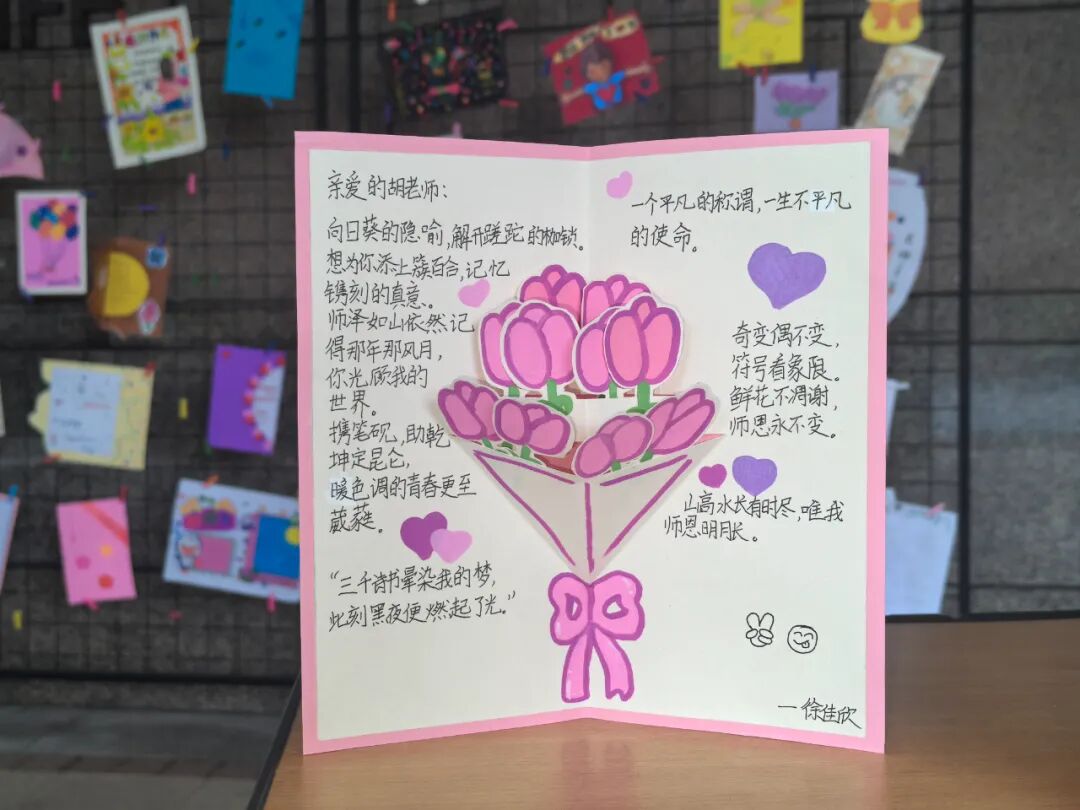 亲爱的胡老师：
向日葵的隐喻，解开蹉跎的枷锁。
想为你添上簇百合，记忆
镌刻的真意。
师泽如山依然记
得那年那风月，
你光顾我的
世界。
携笔砚，助乾
坤定昆仑，
暖色调的青春更至
葳蕤。
“三千诗书晕染我的梦，
此刻黑夜便燃起了光。”
一个平凡的称谓，一生不平凡
的使命。
奇变偶不变，
符号看象限。
鲜花不凋谢，
师恩永不变。
山高水长有时尽，唯我
师恩明月长。
—徐佳欣